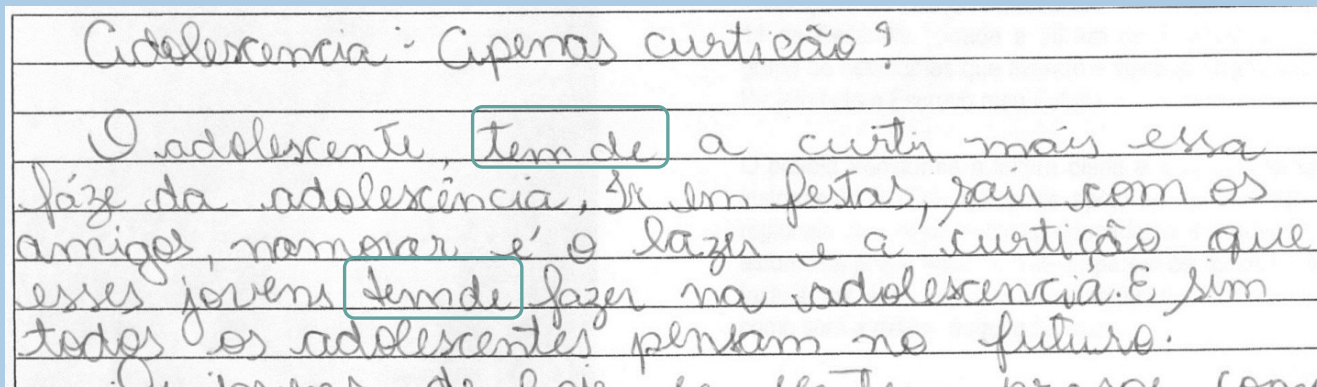 Adolescencia - Apenas curticão?
O adolescente, tem de a curti máis essa
fáze da adolescência, Ir em festas, sair com os
amigos, namorar é o lazer e a curtição que
esses jovens temde fazer na adolescencia. E sim
todos os adolescentes pensam no futuro.
de